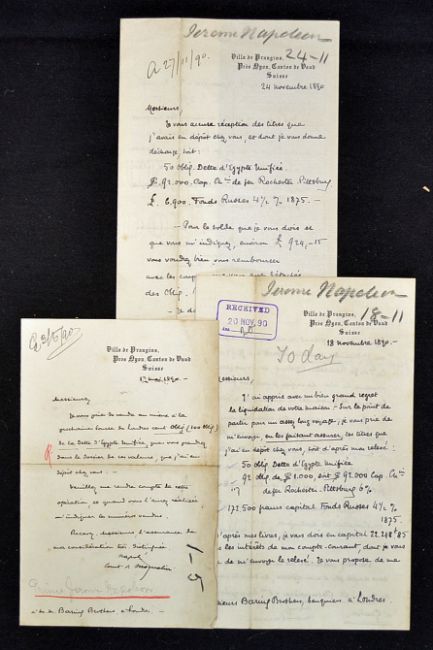 Jerome Napoleon
a 27/11/90.
Villa de Prangins, 24-11
Près Nyon, Canton de Vaud
Suisse
24 novembre 1890
Messieurs,
Je vous accuse réception des titres que
j'avais en dépôt chez vous, et dont je vous donne
décharge, soit:
50 Oblig. Dette d'Egypte Unifiée.
$ 92.000 Cap. Ch. de fer Rochester. Pittsburg
£ 6.900. Fonds Russes 4½ % 1875.-
- Pour le solde que je vous dois et
que vous m'indiquez, environ £ 924,-15
vous voudrez bien vous rembourser
avec les
des Oblig.
- Je
Jerome Napoleon
RECEIVED
20 NOV. 90
Villa de Prangins, 18-11
Près Nyon, Canton de Vaud
Suisse
18 novembre 1890.
To day
Messieurs,
J'ai appris avec un bien grand regret
la liquidation de votre maison. - Sur le point de
partir pour un assez long voyage, je vous prie de
m'envoyer, en les faisant assurer, les titres que
j'ai en dépôt chez vous, soit d'après mon relevé:
50 Oblig. Dette d'Egypte Unifiée
92 Oblig. de $ 1.000, soit $ 92000 Cap. Ch.
de fer Rochester. Pittsburg 6%.
172,500 francs capital Fonds Russes 4½
1875.
D'après mes livres, je vous dois en capital 22.248 f 85
les intérêts de mon compte-courant, dont je vous
de m'envoyer le relevé. Je vous propose de ma
Messieurs Baring Brothers, banquiers à Londres
Villa de Prangins,
Près Nyon, Canton de Vaud
Suisse
1er mai 1890. -
Messieurs,
Je vous prie de vendre au mieux à la
prochaine bourse de Londres cent Oblig. (100 Oblig)
de la Dette d'Egypte Unifiée, que vous prendrez
dans le dossier de ces valeurs, que j'ai en
dépôt chez vous. -
Veuillez me rendre compte de cette
opération et quand vous l'aurez réalisée
m'indiquer les numéros vendus.
Recevez, Messieurs, l'assurance de
ma considération très distinguée.
Napoléon
1-5
Prince Jerome Napoleon
à MM. Baring Brothers, à Londres. -